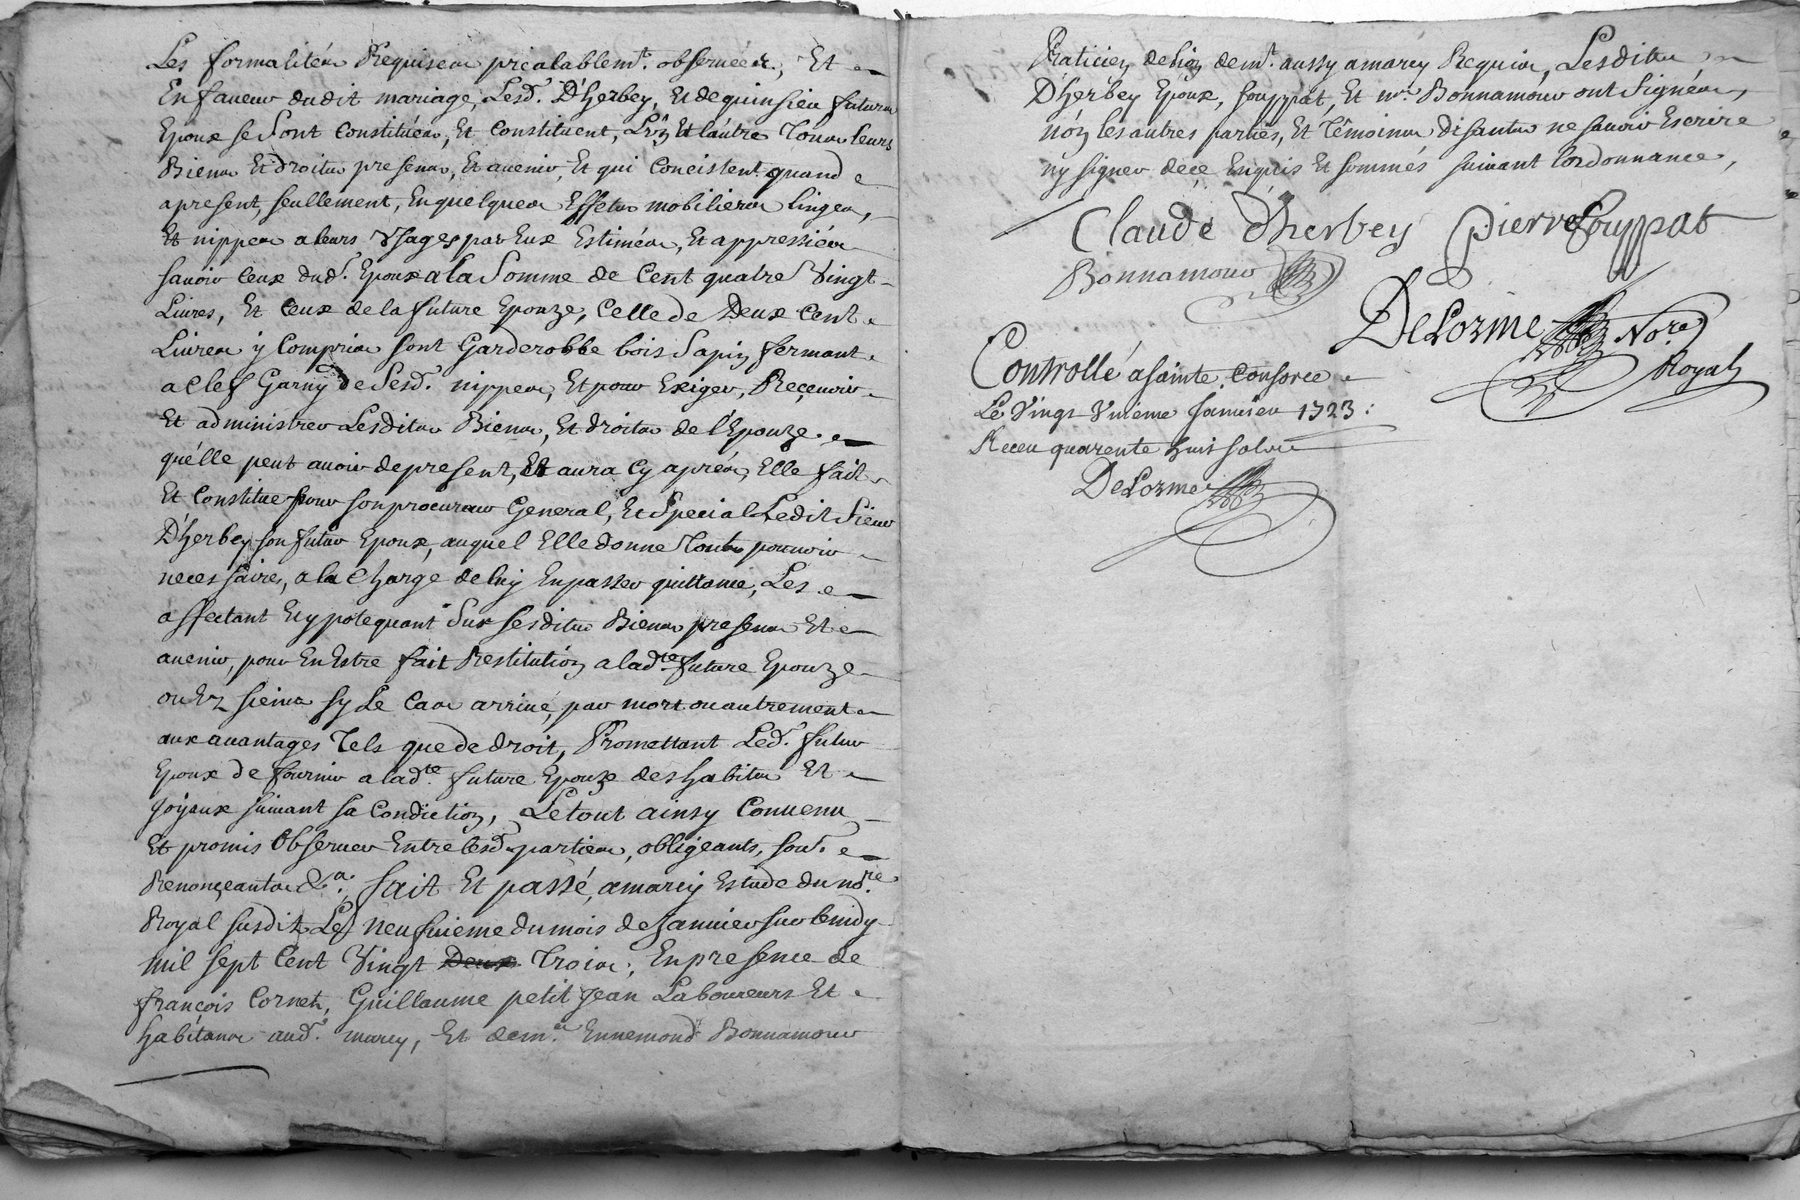 Les formalités Requises préalablemt. observées, Et
En faveur dudit mariage, Lesd. D'herbey, Et dequinsieu futurs
Epoux se Sont Constitués, Et Constituent, L'un Et l'autre Tous leurs
Biens Et droits presens, Et avenir, Et qui Concistent quand
apresent, seullement, En quelques Effets mobiliers linges,
Et nippes a leurs Usages par Eux Estimés, Et appressiés
savoir Ceux dud. Epoux a la Somme de Cent quatre Vingt
Livres, Et Ceux de la future Epouze, Celle de Deux Cent
Livres y Compris sont Garderobbe bois Sapin fermant
a Clef Garny de Sesd. nippes, Et pour Exiger, Reçevoir
Et administrer Lesdits Biens, Et droits de l'Epouze
qu'elle peut avoir de present, Et aura Cy après, Elle fait
Et Constitue pour son procureur General, Et Special Ledit Sieur
D'herbey son futur Epoux, auquel Elle donne Touts pouvoir
necessaires, a la Charge de luy En passer quittance, Les
affectant Et ypotequant Sur sesdits Biens presens Et
avenir, pour En Estre fait Restitution a ladte future Epouze
ou Ez siens sy Le Cas arrive, par mort ou autrement
aux avantages Tels que de droit, Promettant Led. futur
Epoux de fournir a ladte. future Epouze des habits Et
Joyaux suivant sa Condiction, Le tout ainsy Convenu
Et promis Observer Entre lesd. parties, obligeants, sou.
Renonçeants &a. fait Et passé, a marcy Estude du nore.
Royal susdit Le neufvieme du mois de Janvier sur lundy
mil sept Cent Vingt Deux Trois, En presence de
françois Cornet, Guillaume petit Jean Laboureurs Et
habitans aud. marcy, Et de mr. Ennemond Bonnamour
Praticien de demt. aussy a marcy Requis, Lesdits
D'herbey Epoux, souppat, Et mr. Bonnamour ont Signés,
non les autres parties, Et Têmoins disants ne savoir Escrire
ny signer deçe Enquis Et sommés suivant l'ordonnance,
Claude d'herbey pierre souppat
Bonnamour
DeLorme Nore
Royal
Controllé a sainte Consorce
Le Vingt Unieme Janvier 1723
Receu quarente huit sols
DeLorme